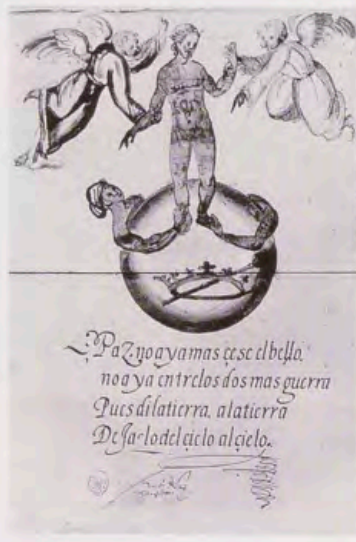 Paz, no aya mas cese el bello,
no aya entre los dos mas guerra
Pues di la tierra, a la tierra
Deja lo del cielo al cielo.